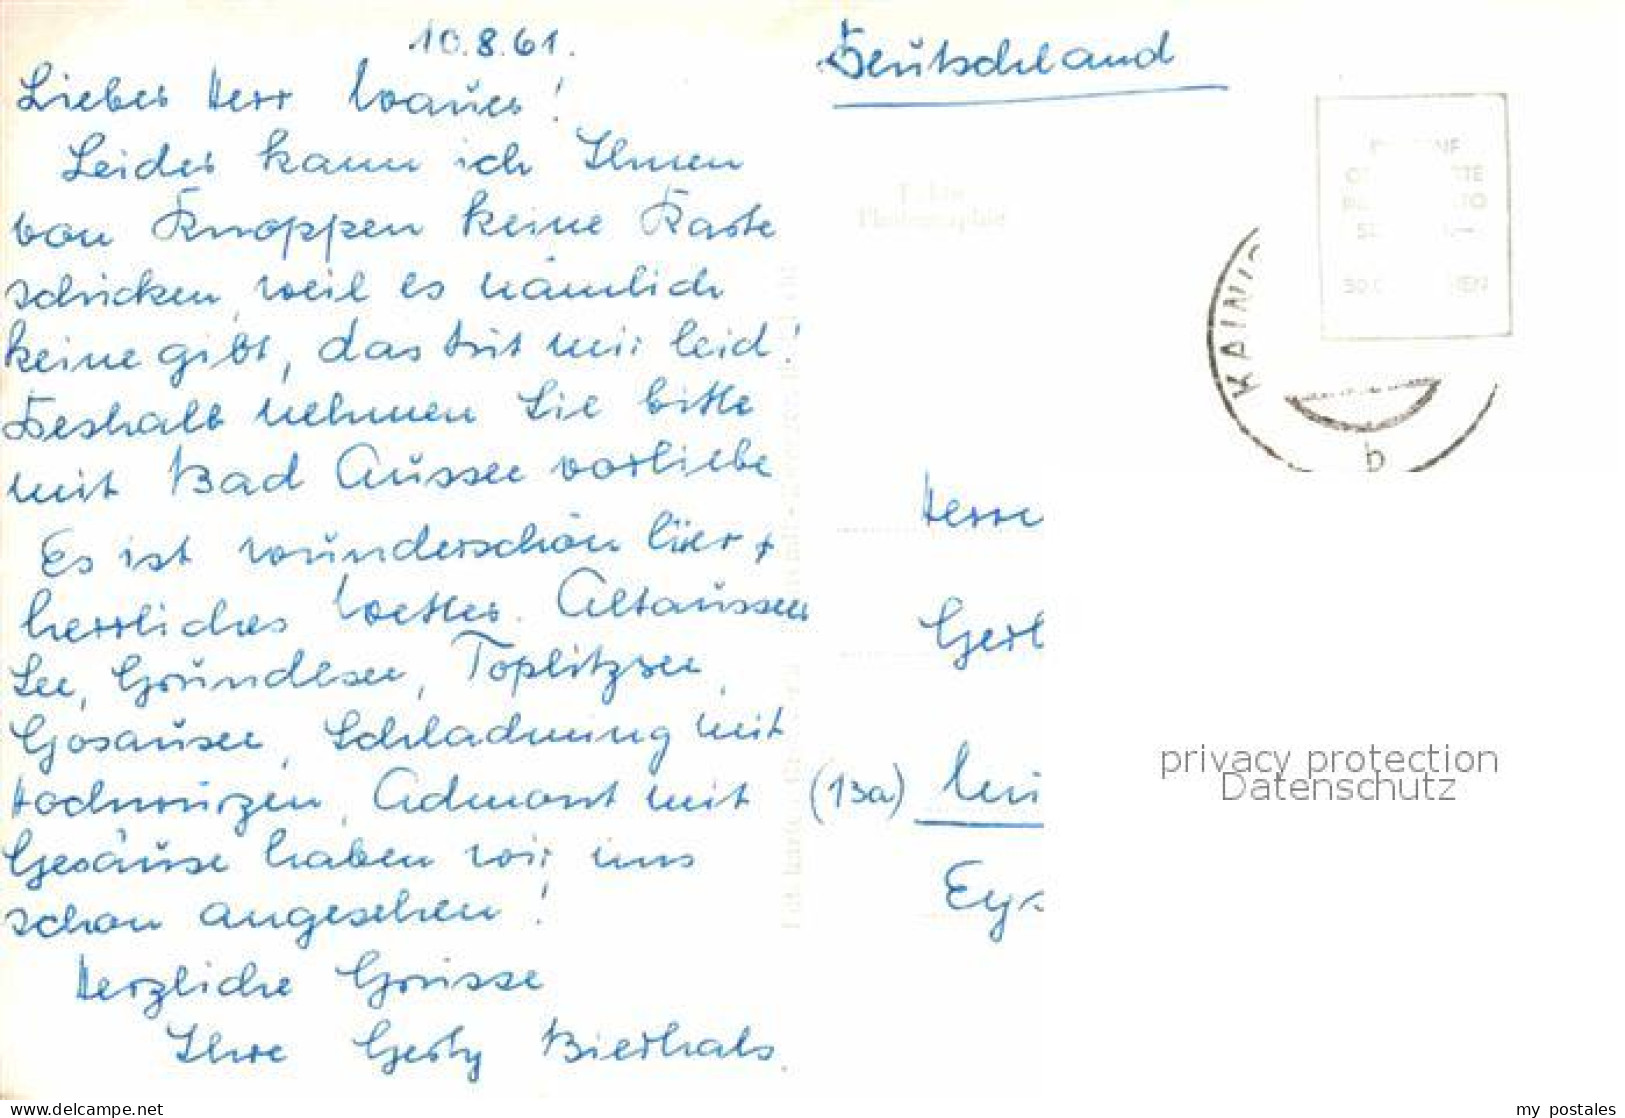 10.8.61.
Lieber Herr
Leider kann ich Ihnen
von Knoppen keine Karte
schicken, weil es nämlich
keine gibt, das tut mir leid!
Deshalb nehmen Sie bitte
mit Bad Aussee vorliebe
Es ist wunderschön hier +
herrliches Wetter. Altausseer
See, Grundlsee, Toplitzsee,
Gosausee, Schladming mit
Hochwurzen, Admont mit
Gesäuse haben wir uns
schon angesehen!
Herzliche Grüsse
Ihre Gerty Bierhals
Deutschland
Echte
Photographie
KAINI
b
Herrn
Gerh
(13a)
Eys
privacy protection
Datenschutz
www.delcampe.net
my_postales